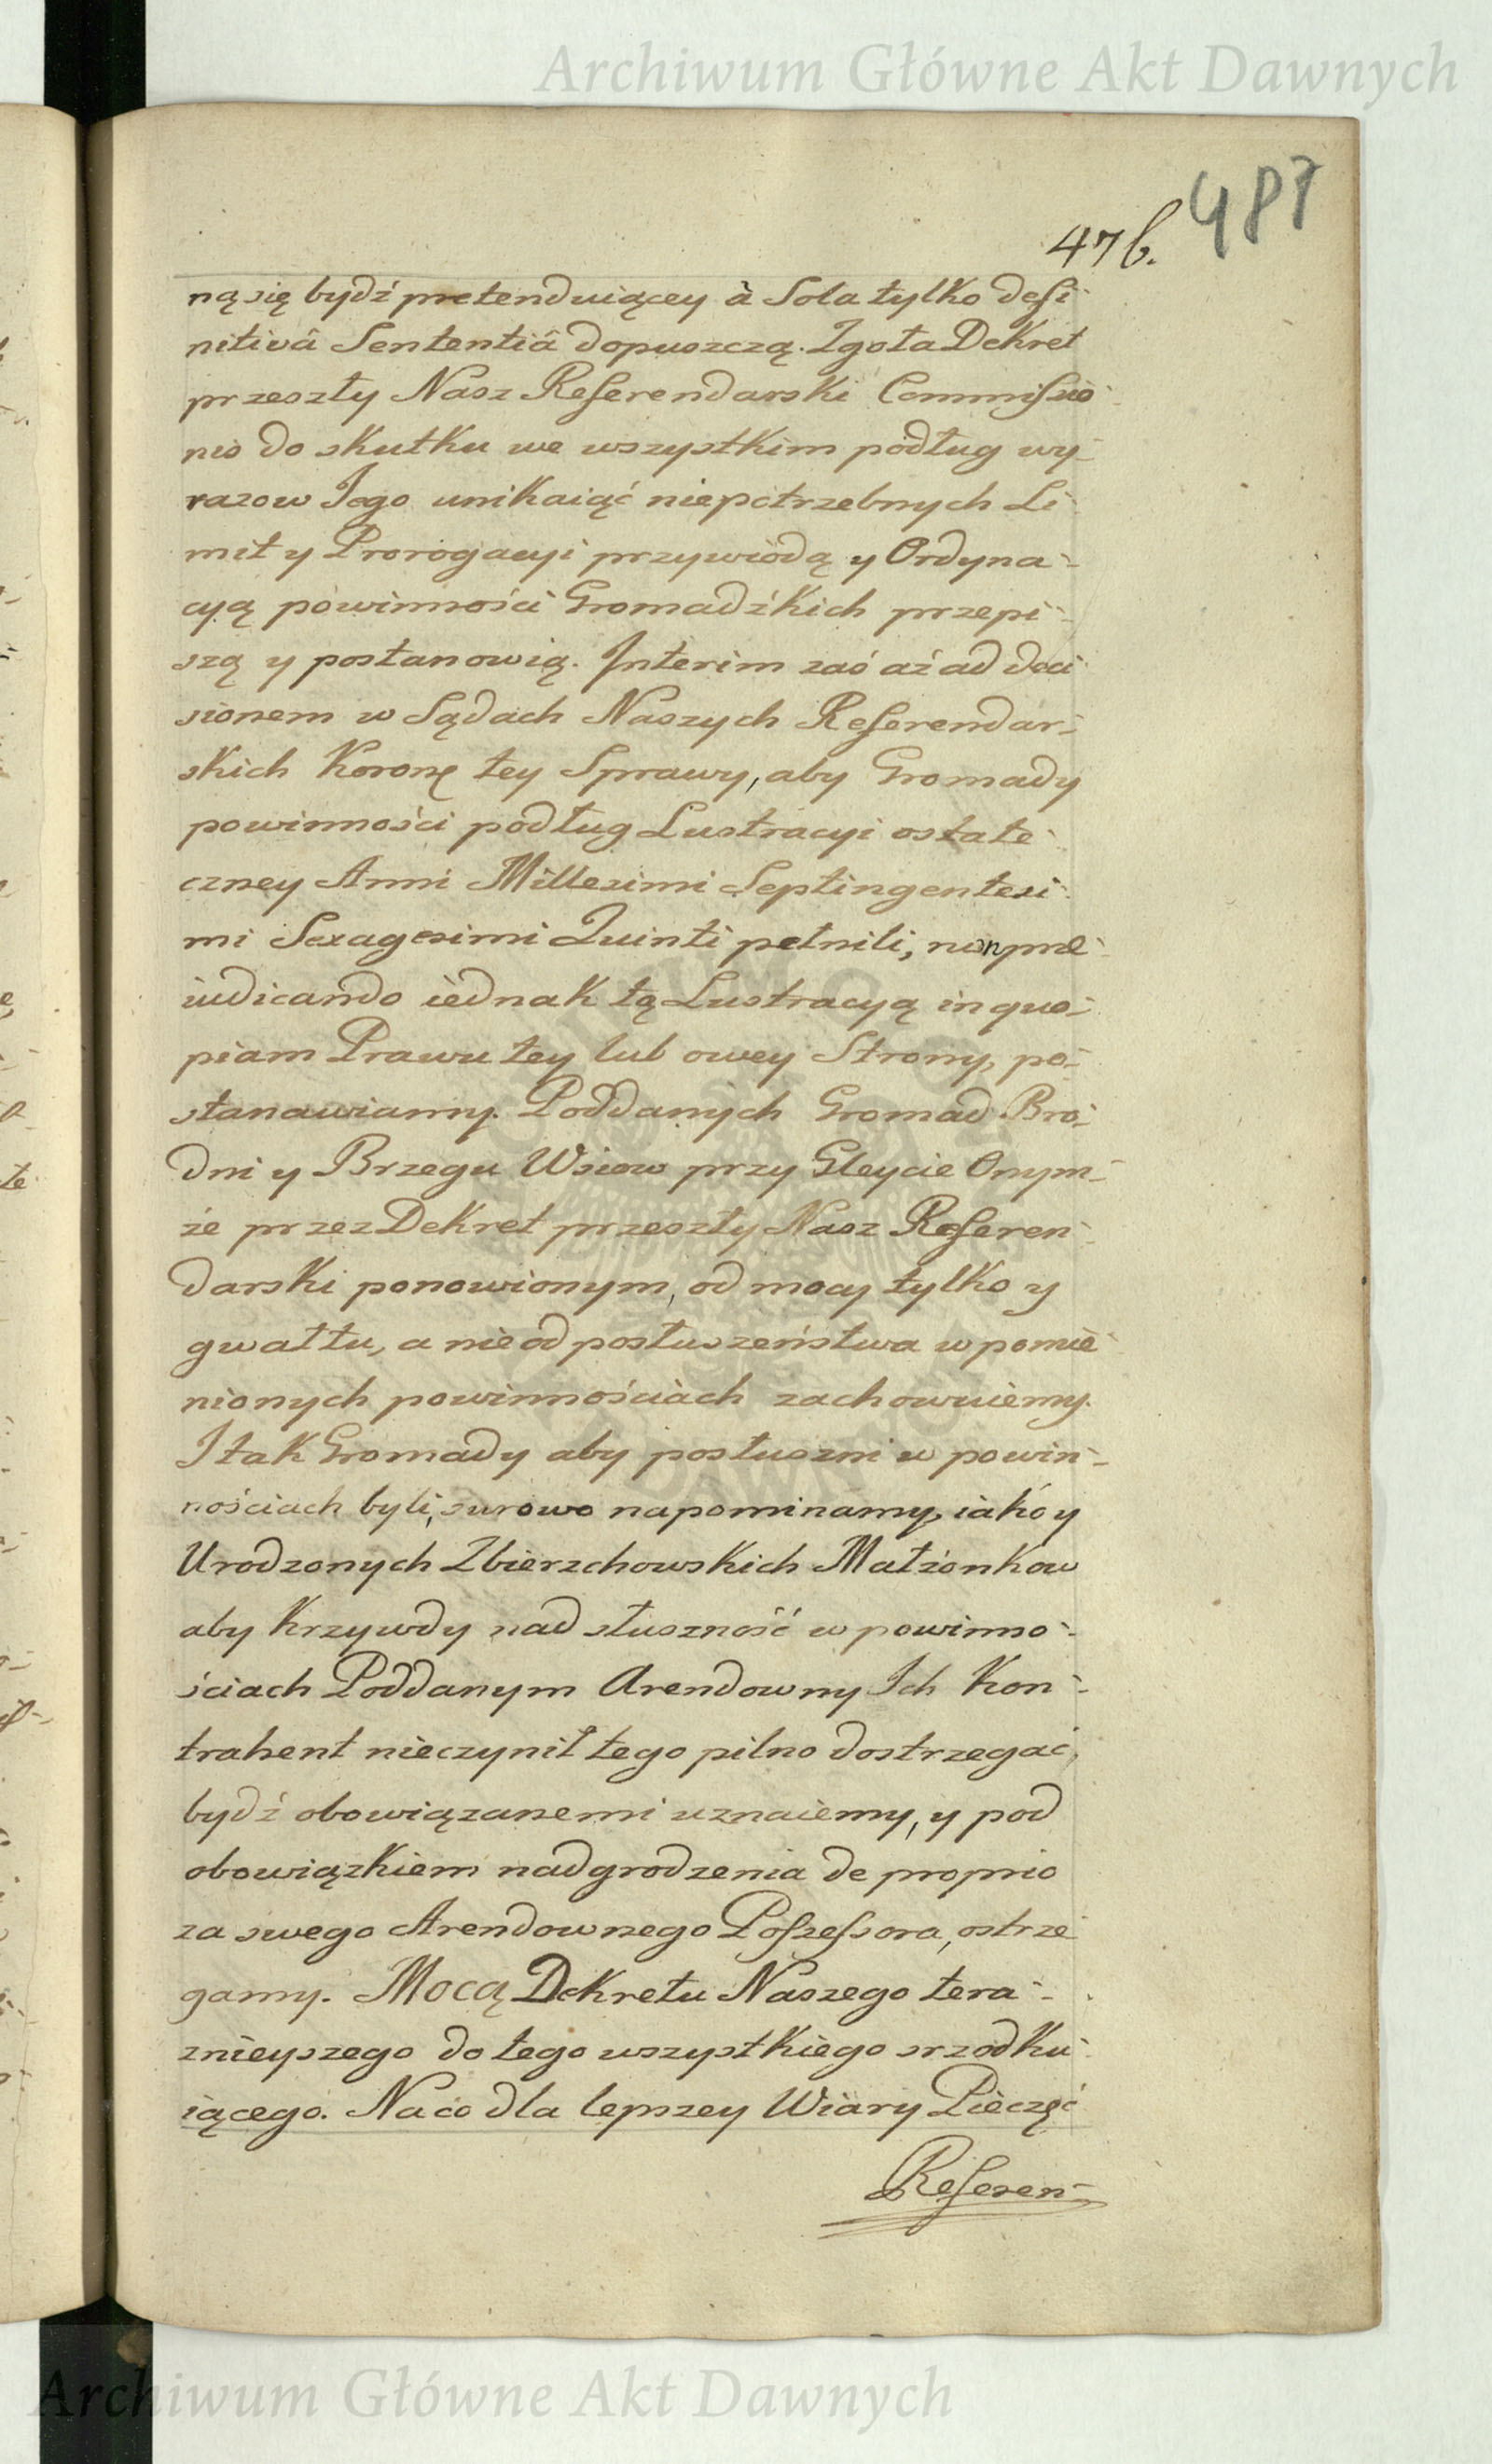 Archiwum Główne Akt Dawnych
487
476.
ną się bydź pretenduiącey à Sola tylko defi-
nitivâ Sententiâ dopuszczą. Zgoła Dekret
przeszły Nasz Referendarski Commissio-
nis do skutku we wszystkim podług wy-
razow Jego unikaiąć niepotrzebnych Li-
mit y Prorogacyi przywiodą y Ordyna-
cyą powinności Gromadźkich przepi-
szą y postanowią. Interim zaś aż ad deci-
sionem w Sądach Naszych Referendar-
skich Koronę tey Sprawy, aby Gromady
powinności podług Lustracyi ostate-
czney Anni Millesimi Septingentesi-
mi Sexagesimi Quinti pełnili, non præ-
iudicando iednak tą Lustracyą in quo-
piam Prawu tey lub owey Strony, po-
stanawiamy. Poddanych Gromad Bro-
dni y Brzegu Wsiow przy Gleycie Onym-
że przez Dekret przeszły Nasz Referen-
darski ponowionym, od mocy tylko y
gwałtu, a nie od posłuszeństwa w pomie-
nionych powinnościach zachowuiemy.
I tak Gromady aby posłuszni w powin-
nościach byli, surowo napominamy, iako y
Urodzonych Zbierzchowskich Małżonkow
aby Krzywdy nad słuszność w powinno-
ściach Poddanym Arendowny Ich Kon-
trahent nieczynił tego pilno dostrzegać,
bydź obowiązanemi uznaiemy, y pod
obowiązkiem nadgrodzenia de proprio
za swego Arendownego Possessora, ostrze-
gamy. Mocą Dekretu Naszego tera-
znieyszego do tego wszystkiego srzodku-
iącego. Na co dla lepszey Wiary Pieczęć
Referen-
Archiwum Główne Akt Dawnych